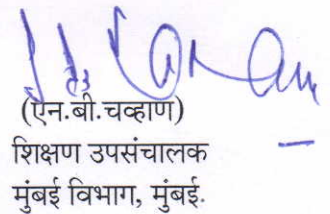 (एन.बी.चव्हाण)
शिक्षण उपसंचालक
मुंबई विभाग, मुंबई.